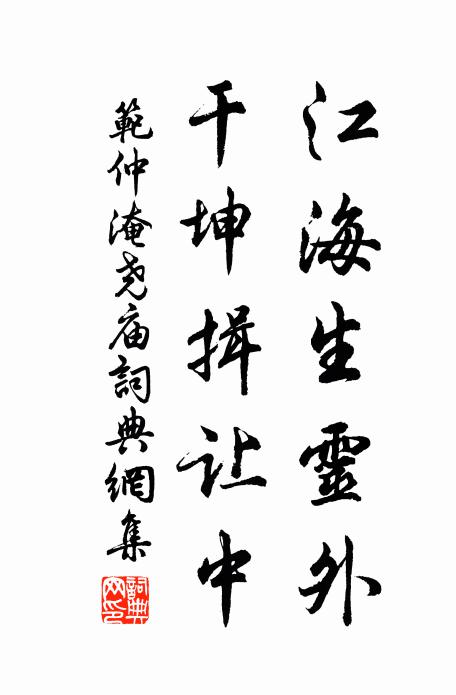 江海生靈外
干坤揖让中
範仲淹尧庙詞典網集
詞典網印